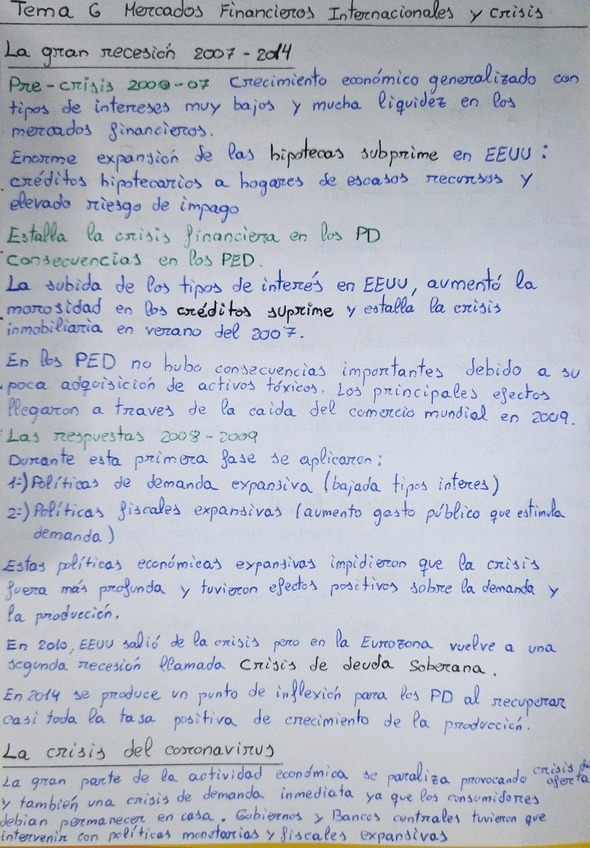 Tema 6 Mercados Financieros Internacionales y crisis
La gran recesión 2007-2014
Pre-crisis 2000-07 Crecimiento económico generalizado con
tipos de intereses muy bajos y mucha liquidéz en los
mercados financieros.
Enorme expansión de las hipotecas subprime en EEUU:
créditos hipotecarios a hogares de escasos recursos y
elevado riesgo de impago
Estalla la crisis financiera en los PD
Consecuencias en los PED.
La subida de los tipos de interés en EEUU, aumentó la
morosidad en los créditos suprime y estalla la crisis
inmobiliaria en verano del 2007.
En los PED no hubo consecuencias importantes debido a su
poca adquisición de activos tóxicos. Los principales efectos
llegaron a traves de la caida del comercio mundial en 2009.
Las respuestas 2008-2009
Durante esta primera fase se aplicaron:
1:) Políticas de demanda expansiva (bajada tipos interes)
2:) Políticas fiscales expansivas (aumento gasto público que estimula
demanda)
Estas políticas económicas expansivas impidieron que la crisis
fuera más profunda y tuvieron efectos positivos sobre la demanda y
la producción.
En 2010, EEUU salió de la crisis pero en la Eurozona vuelve a una
segunda recesión llamada Crisis de deuda Soberana.
En 2014 se produce un punto de inflexión para los PD al recuperar
casi toda la tasa positiva de crecimiento de la producción.
La crisis del coronavirus
La gran parte de la actividad económica se paraliza provocando crisis de oferta
y también una crisis de demanda inmediata ya que los consumidores
debian permanecer en casa. Gobiernos y Bancos centrales tuvieron que
intervenir con políticas monetarias y fiscales expansivas